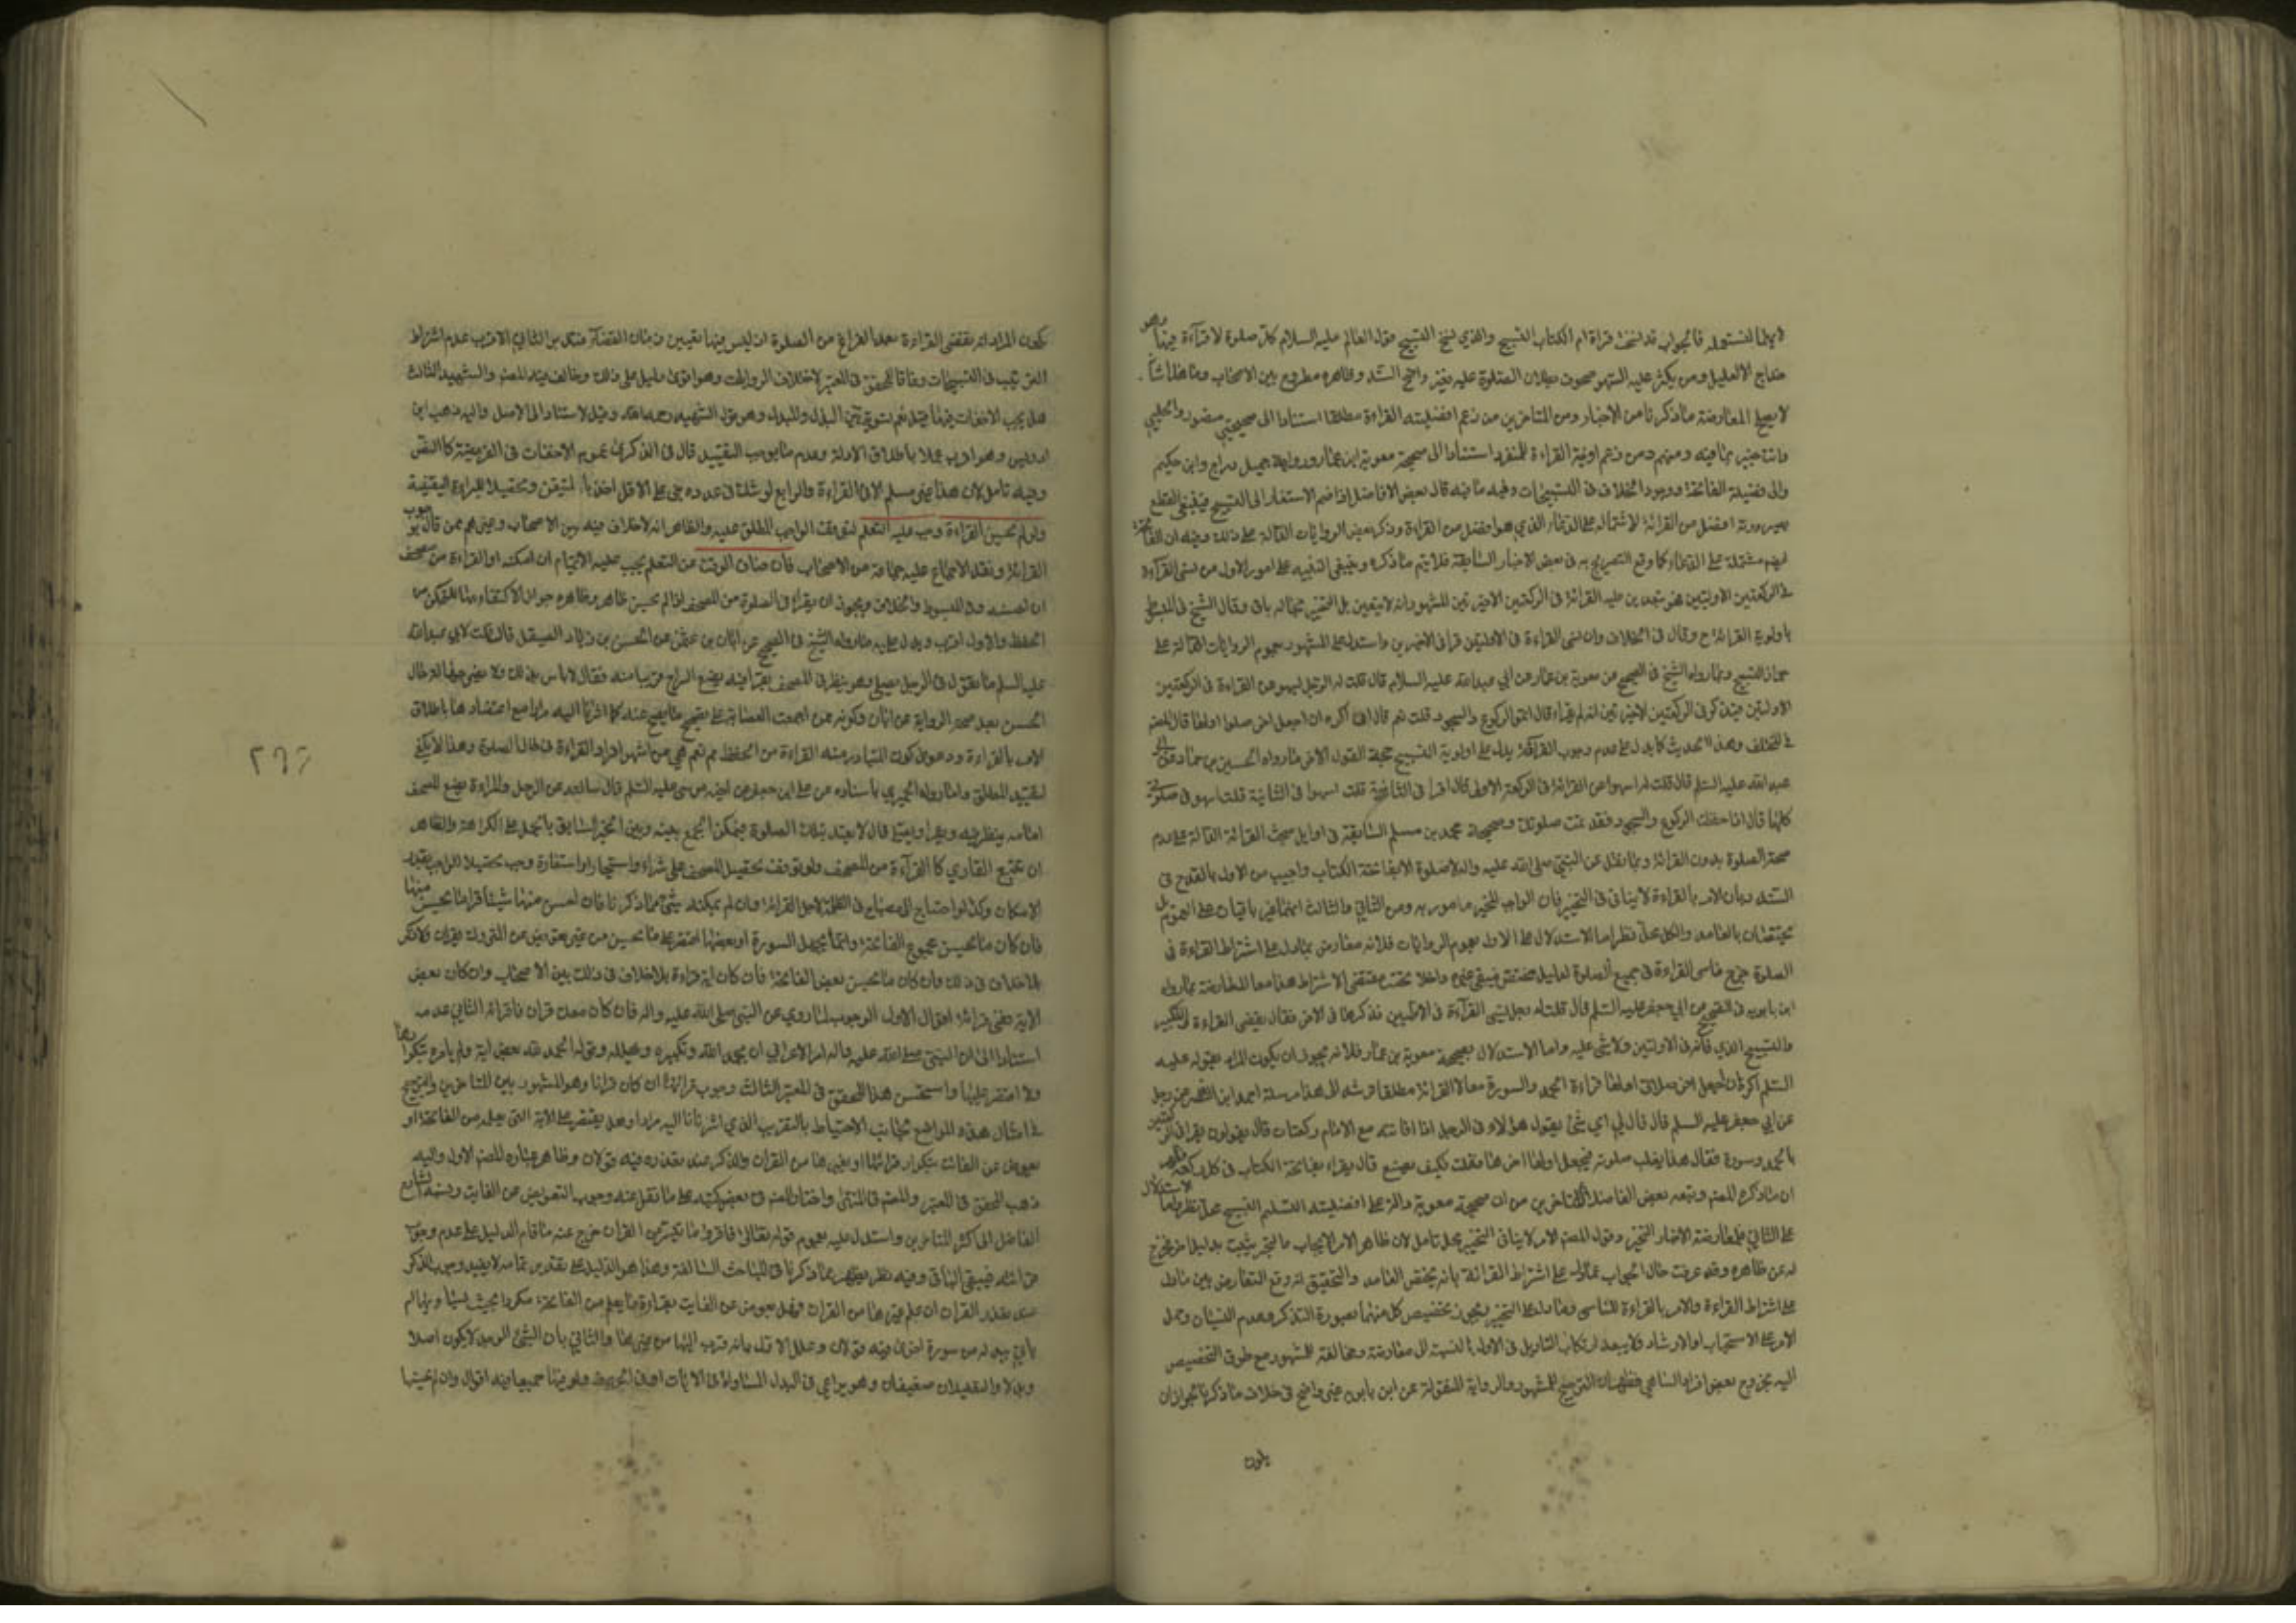 لايهما نستعمله فالجواب قد نسخت قراءة ام الكتاب التسبيح والذي نسخ التسبيح قول العالم عليه السلام كل صلوة لا قراءة فيها فهى
خداج الا للعليل ومن يكثر عليه السهو بطلان الصلوة عليه بغير واضح السند وظاهره مطروح بين الاصحاب
لا يصلح لمعارضة ما ذكرنا من الاخبار ومن المتاخرين من زعم افضلية القراءة مطلقا استنادا الى صحيحتي منصور والحلبي
وانت خبير بما فيه ومنهم من زعم اولوية القراءة للمنفرد استنادا الى صحيحة معوية ابن عمار ورواية جميل بن دراج وابن حكيم
والى فضيلة الفاتحة ووجود الخلاف في التسبيحات وفيه ما فيه قال بعض الافاضل اذا ضم الاستغفار الى التسبيح فينبغي القطع
بصيرورته افضل من القرائة لاشتماله على الدعاء الذي هو افضل من القراءة وذكر بعض الروايات الدالة على ذلك وفيه ان الفاتحة
ايضا مشتملة على الدعاء كما وقع التصريح به في بعض الاخبار السابقة فلا يتم ما ذكره وينبغي التنبيه على امور الاول من نسى القراءة
في الركعتين الاوليتين هل يتعين عليه القرائة في الركعتين الاخيرتين المشهور انه لا يتعين بل التخيير بحاله باق وقال الشيخ في المبسوط
باولوية القرائة ح وقال في الخلاف وان نسى القراءة في الاوليتين قرأ في الاخيرتين واستدل على المشهور بعموم الروايات الدالة على
جواز التسبيح وبما رواه الشيخ في الصحيح عن معوية بن عمار عن ابي عبدالله عليه السلام قال قلت له الرجل يسهو عن القراءة في الركعتين
الاوليتين فيذكر في الركعتين الاخيرتين انه لم يقراء قال اتم الركوع والسجود قلت نعم قال انى اكره ان اجعل اخر صلوتي اولها قال المصنف
في المختلف وهذا الحديث كما يدل على عدم وجوب القراءة يدل على اولوية التسبيح حجة القول الاخر ما رواه الحسين بن حماد عن ابي
عبدالله عليه السلم قال قلت له اسهوا عن القرائة في الركعة الاولى قال اقرا في الثانية قلت اسهوا في الثانية قلت اسهو في صلوتي
كلها قال اذا حفظت الركوع والسجود فقد تمت صلوتك وصحيحة محمد بن مسلم السابقة في اوايل مبحث القرائة الدالة على عدم
صحة الصلوة بدون القرائة وبما نقل عن النبي صلى الله عليه واله لا صلوة الا بفاتحة الكتاب واجيب عن الاول بالقدح في
السند وبان الامر بالقراءة لا ينافي التخيير فان الواجب المخير مامور به وعن الثاني والثالث انهما غير باقيان على العموم بل
يختصان بالعامد والكل محل نظر اما الاستدلال على الاول بعموم الروايات فلانه معارض بما دل على اشتراط القراءة في
الصلوة خرج ناسي القراءة في جميع الصلوة لدليل مختص فيبقى غيره داخلا تحت مقتضى الاشتراط هذا مع المعارضة بما رواه
ابن بابويه في الصحيح عن ابي جعفر عليه السلم قال قلت له رجل نسى القراءة في الاوليين فذكرها في الاخر فقال يقضي القراءة والتكبير
والتسبيح الذي فاته في الاولتين ولا شئ عليه واما الاستدلال بصحيحة معوية بن عمار فلانه يجوز ان يكون المراد بقوله عليه
السلم اكره ان اجعل اخر صلاتي اولها قراءة الحمد والسورة معا لا القرائة مطلقا مرسلة احمد ابن النضر عن رجل
عن ابي جعفر عليه السلم قال قال لي اي شئ يقول هؤلاء في الرجل اذا فاتته مع الامام ركعتان قال يقولون يقرا في الركعتين
بالحمد وسورة فقال هذا يقلب صلوته فيجعل اولها اخرها فقلت فكيف يصنع قال يقراء بفاتحة الكتاب في كل ركعة
ان ما ذكره المصنف وتبعه بعض الفاضل المتاخرين من ان صحيحة معوية دالة على افضلية التسبيح محل نظر واما الاستدلال
على الثاني فلمعارضة الاخبار التخيير وقول المصنف الامر لا ينافي التخيير محل تامل لان ظاهر الامر الايجاب
له عن ظاهره وقد عرفت حال الجواب عما دل على اشتراط القرائة بانه يختص العامد والتحقيق انه وقع التعارض بين ما دل
على اشتراط القراءة والامر بالقراءة للناسي وما دل على التخيير فيجوز تخصيص كل منهما بصورة التذكر وعدم النسيان وحمل
الامر على الاستحباب او الارشاد فلا يبعد ارتكاب التاويل في الاول بالنسبة الى معارضته ومخالفته للمشهور مع طرق التخصيص
اليه بخروج بعض افراد الناسي فظهر ان الترجيح للمشهور والرواية المنقولة عن ابن بابويه غير واضح في خلاف ما ذكرنا لجواز ان
يكون
يكون المراد انه يقضى القراءة بعد الفراغ من الصلوة اذ ليس فيها تعيين زمان القضاء الثاني الاقرب عدم اشتراط
وفاقا للمحقق في المعتبر لاختلاف الروايات وهو اقوى دليل على ذلك وخالف فيه المصنف والشهيد الثالث
هل يجب الاخفات فيها قيل نعم تسوية بين البدل والمبدل وهو قول الشهيد رحمه الله وقيل لا استنادا الى الاصل واليه ذهب ابن
ادريس وهو اقرب عملا باطلاق الادلة وعدم ما يوجب التقييد قال في الذكرى عموم الاخفات في الفريضة كالنص
وفيه تامل لان هذا غير مسلم الا في القراءة والرابع لو شك في عدده بنى على الاقل اخذا بالمتيقن وتحصيلا للبراءة اليقينية
ولو لم يحسن القراءة وجب عليه التعلم لتوقف الواجب المطلق عليه والظاهر انه لا خلاف فيه بين الاصحاب وغيرهم ممن قال بوجوب
القرائة ونقل الاجماع عليه جماعة من الاصحاب فان ضاق الوقت عن التعلم يجب عليه الايتمام ان امكنه او القراءة من مصحف
ان احسنه وفي المبسوط والخلاف ويجوز ان يقراء في الصلوة من المصحف اذا لم يحسن ظاهر وظاهره جواز الاكتفاء به للمتمكن من
الحفظ والاول اقرب ويدل عليه ما رواه الشيخ في الصحيح عن ابان بن عثمان عن الحسن بن زياد الصيقل قال قلت لابي عبدالله
عليه السلم ما تقول في الرجل يصلي وهو ينظر في المصحف يقرا فيه يضع السراج قريبا منه فقال لا باس بذلك ولا يضر جهالة حال
الحسن بعد صحة الرواية عن ابان وكونه ممن اجمعت العصابة على تصحيح ما يصح عنه كما اشرنا اليه مرارا مع اعتضادها باطلاق
الامر بالقراءة ودعوى كون المتبادر منه القراءة من الحفظ مم نعم هي من اشهر افراد القراءة في حال الصلوة وهذا لا يكفي
لتقييد المطلق واما رواه الحميري باسناده عن علي ابن جعفر عن اخيه موسى عليه السلم قال سالته عن الرجل والمراءة يضع المصحف
امامه ينظر فيه ويقرا ويصلي قال لا يعتد بتلك الصلوة فيمكن الجمع بينه وبين الخبر السابق بالحمل على الكراهة والظاهر
ولو توقف تحصيل المصحف على شراء او استيجار او استعارة وجب تحصيلا للواجب بقدر
الامكان وكذا لو احتاج الى مصباح في الظلمة لاجل القرائة فان لم يمكنه شئ مما ذكرنا فان احسن منها شيئا قرا ما يحسن منها
فان كان ما يحسن مجموع الفاتحة وانما يجهل السورة او بعضها اقتصر على ما يحسن من غير تعويض عن المتروك بقران ولا ذكر
بلا خلاف في ذلك وان كان ما يحسن بعض الفاتحة فان كان اية قراءة بلا خلاف في ذلك بين الاصحاب وان كان بعض
الاية ففي قرائته اقوال الاول الوجوب لما روي عن النبي صلى الله عليه واله فان كان معك قران فاقرائه الثاني عدمه
استنادا الى ان النبي صلى الله عليه واله امر الاعرابي ان يحمد الله ويكبره ويهلله وقوله الحمد لله بعض اية ولم يامره بتكرارها
ولا اقتصر عليها واستحسن هذا المحقق في المعتبر الثالث وجوب قرائته ان كان قرانا وهو المشهور بين المتاخرين والترجيح
في امثال هذه المواضع لجانب الاحتياط بالتقريب الذي اشرنا اليه مرارا وهل يقتصر على الاية التي يعلم من الفاتحة او
يعوض عن الفائت بتكرار قرائتها او بغيرها من القران والذكر عند تعذره فيه قولان وظاهر عبارة المصنف الاول واليه
ذهب المحقق في المعتبر والمصنف في المنتهى واختار المصنف في بعض كتبه على ما نقل عنه وجوب التعويض عن الفايت ونسبه الشارح
الفاضل الى اكثر المتاخرين واستدل عليه بعموم قوله تعالى فاقروا ما تيسر من القران خرج عنه ما قام الدليل على عدم وجوبه
فيبقى الباقي وفيه نظر يظهر مما ذكرنا في المباحث السالفة وهذا الدليل على تقدير تمامه لا يفيد وجوب الذكر
عند تعذر القران ان علم غيرها من القران وهل يعوض عن الفايت بقراءة ما يعلم من الفاتحة مكررا بحيث يساويها ام
ياتي ببدله من سورة اخرى فيه قولان وعلل الاول بانه اقرب اليها من غيرها والثاني بان الشئ الواحد لا يكون اصلا
وبدلا والتعليلان ضعيفان وهل يراعى في البدل المساواة في الايات او في الحروف او فيهما جميعا فيه اقوال وان لم يحسنها
٢٦٦